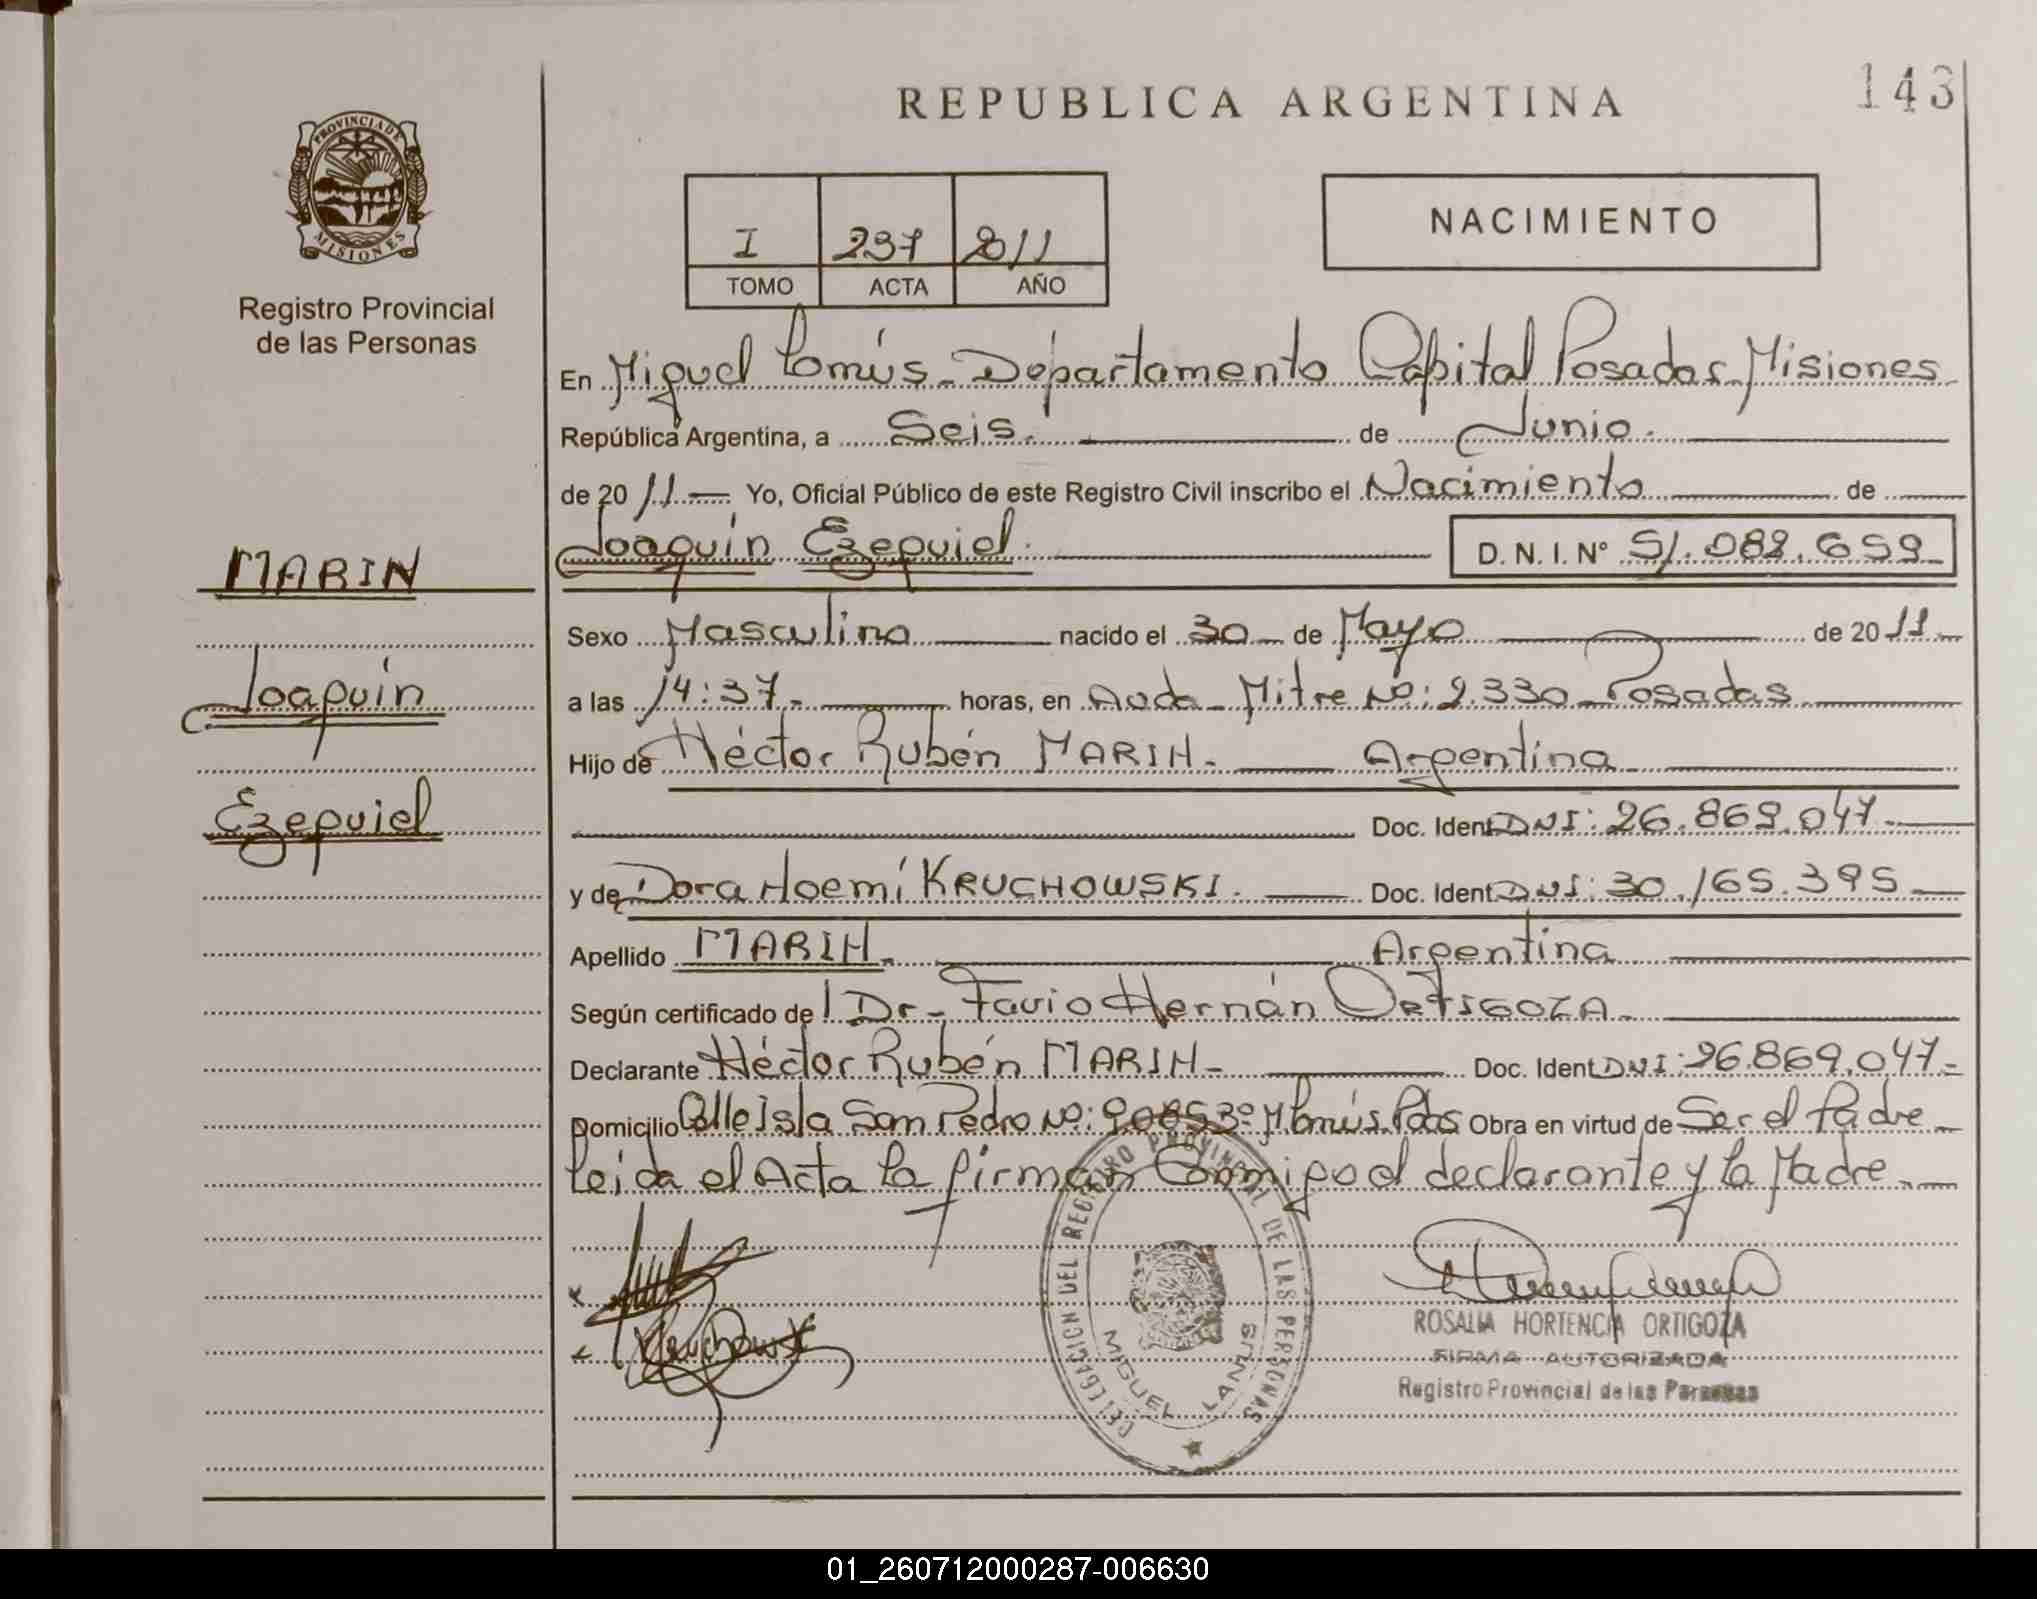 143
REPUBLICA ARGENTINA
PROVINCIA DE
MISIONES
Registro Provincial
de las Personas
I 237 2011
TOMO ACTA AÑO
NACIMIENTO
En Miguel Lanús - Departamento Capital Posadas Misiones
República Argentina, a Seis. de Junio.
de 20 11 Yo, Oficial Público de este Registro Civil inscribo el Nacimiento de
Joaquín Ezequiel. D. N. I. N° 51.082.659
MARIN
Joaquín
Ezequiel
Sexo Masculino nacido el 30 de Mayo de 20 11
a las 14:37. horas, en Avda - Mitre Nº: 2.330 - Posadas
Hijo de Héctor Rubén MARIN. Argentina
Doc. Ident DNI: 26.869.047
y de Dora Noemí KRUCHOWSKI. Doc. Ident DNI: 30.165.395
Apellido MARIN. Argentina
Según certificado de l Dr - Favio Hernán ORTIGOZA.
Declarante Héctor Rubén MARIN - Doc. Ident DNI: 26.869.047 -
Domicilio Calle Isla San Pedro Nº: M Lanús. Pdas Obra en virtud de Ser el Padre
Leida el Acta la firman Conmigo el declarante y la Madre
DELEGACION DEL REGISTRO PROVINCIAL DE LAS PERSONAS
MIGUEL LANUS
Kruchowski
ROSALIA HORTENCIA ORTIGOZA
FIRMA AUTORIZADA
Registro Provincial de las Personas
01_260712000287-006630